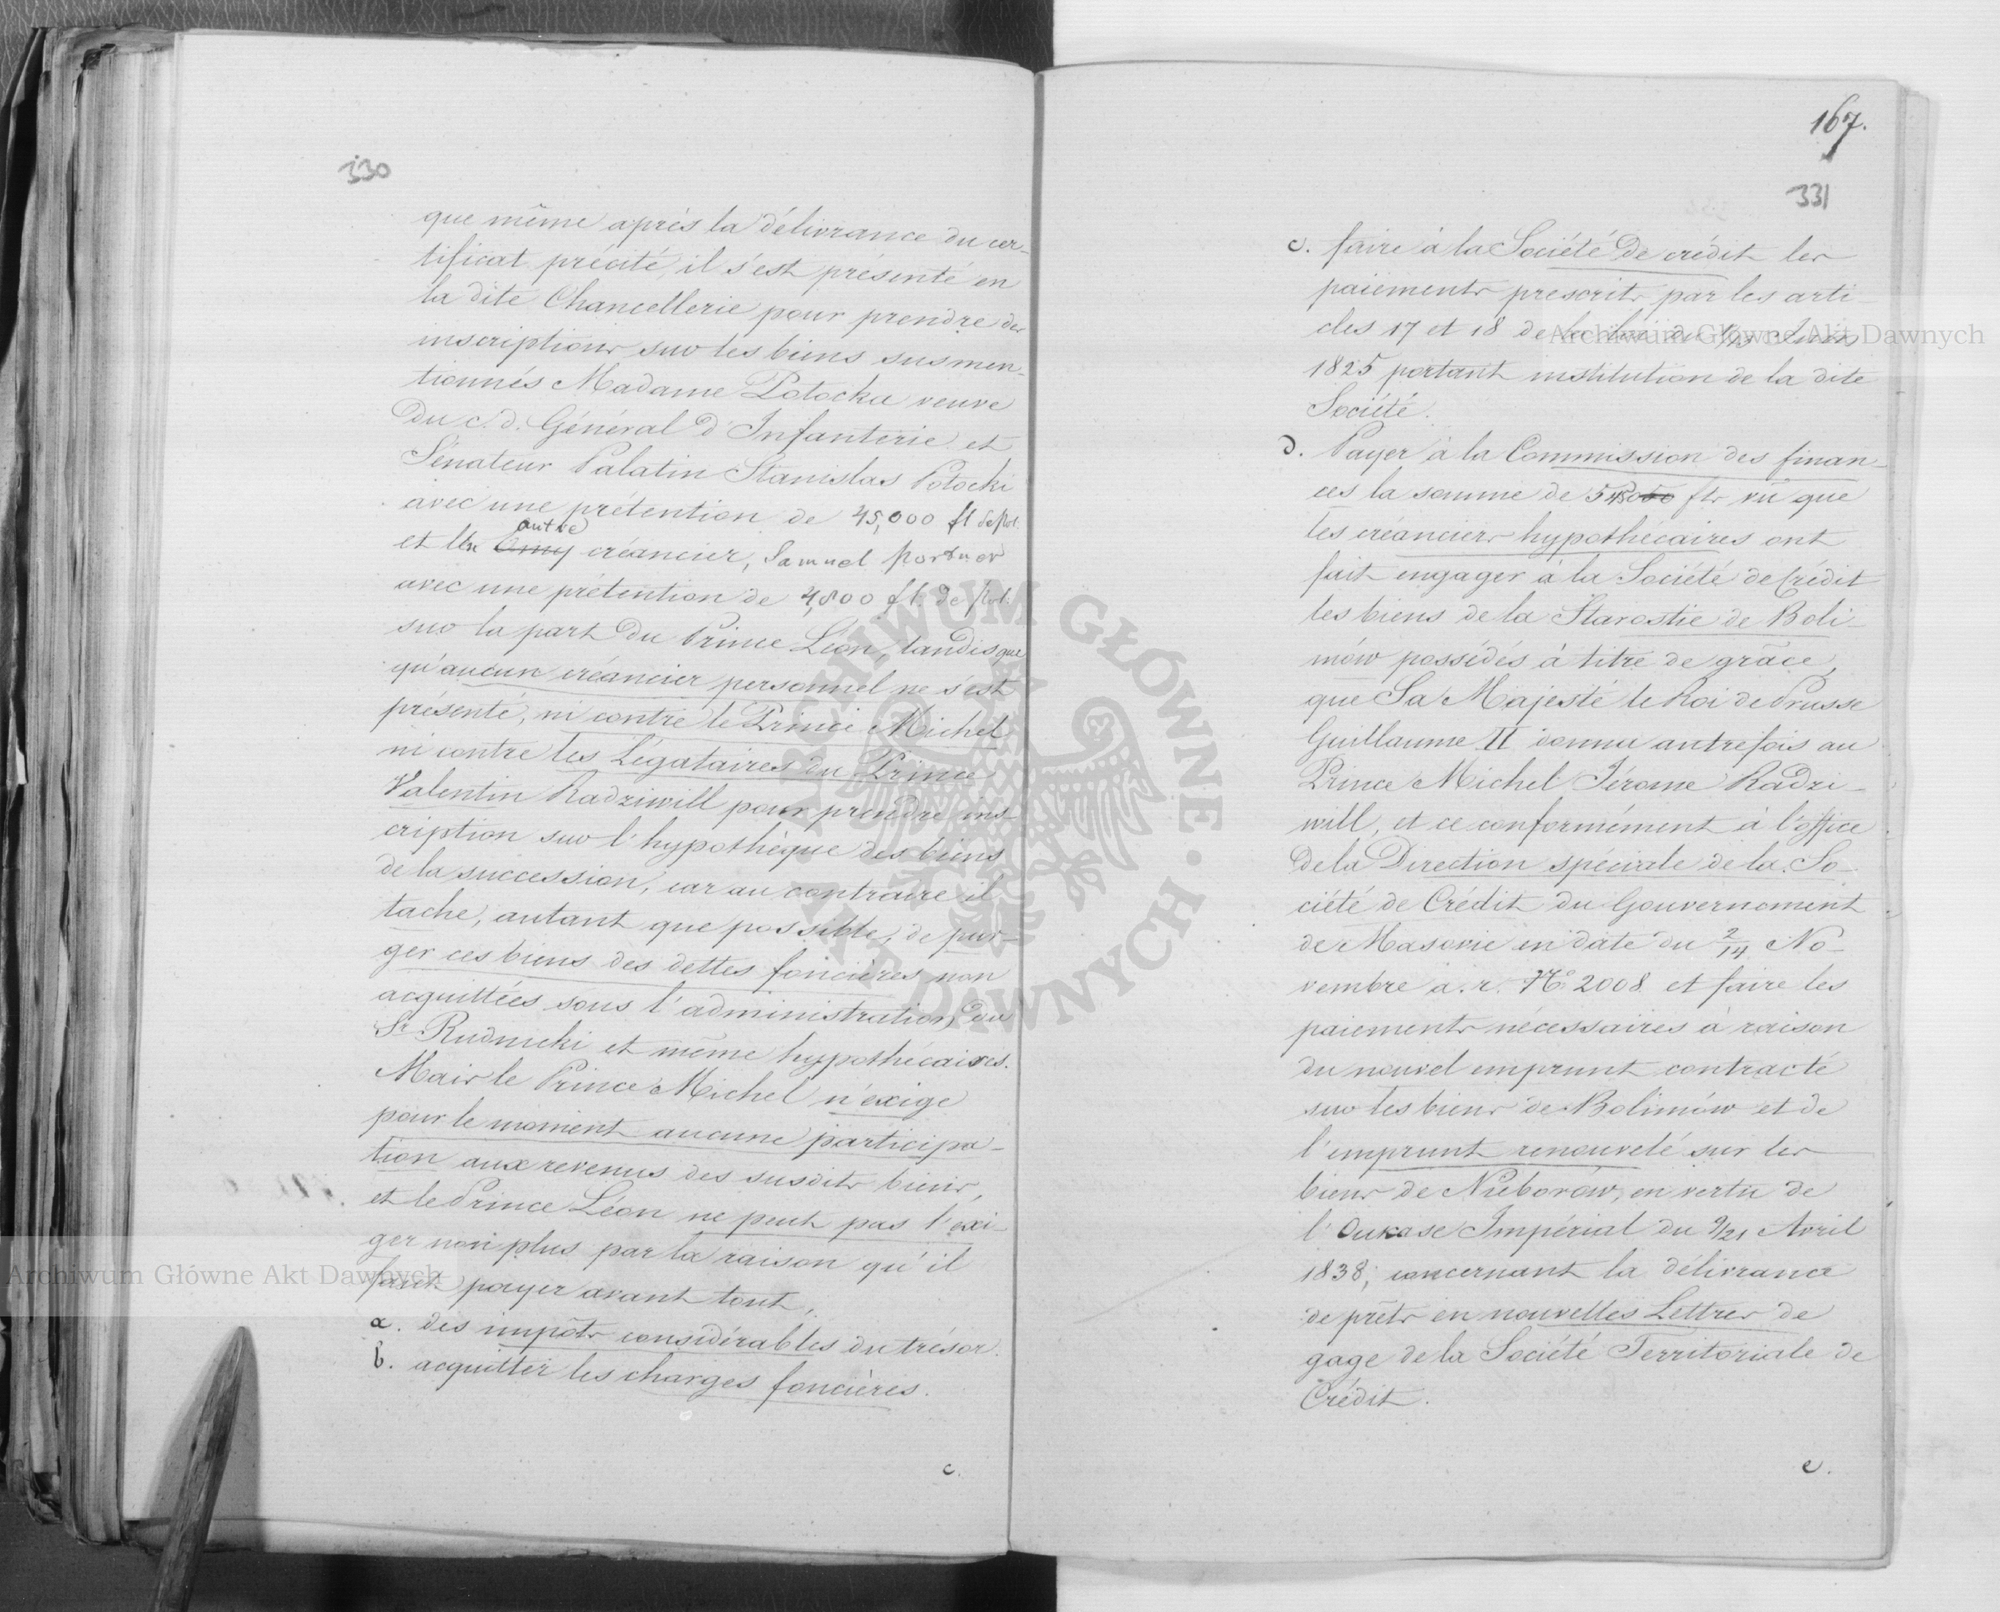 330
que même après la délivrance du cer-
tificat précité, il s'est présenté en
la dite Chancellerie pour prendre des
inscriptions sur les biens susmen-
tionnés Madame Potocka veuve
du c. d. Général d'Infanterie et
Sénateur Palatin Stanislas Potocki
avec une prétention de 45,000 fl de Pol.
autre
et Un créancier, Samuel Portner
avec une prétention de 4,800 fl. de Pol:
sur la part du Prince Léon, tandisque
qu'aucun créancier personnel ne s'est
présenté, ni contre le Prince Michel
ni contre les Légataires du Prince
Valentin Radziwill pour prendre ins-
cription sur l'hypothèque des biens
de la succession, car au contraire il
tache, autant que possible, de pur-
ger ces biens des dettes foncières non
acquittées sous l'administration du
Sr Rudnicki et même hypothécaires.
Mais le Prince Michel n'éxige
pour le moment aucune participa-
tion aux revenus des susdits biens,
et le Prince Léon ne peut pas l'exi-
ger non plus par la raison qu'il
faut payer avant tout,
a. des impôts considérables du trésor.
b. acquitter les charges foncières.
c.
167.
331
c. faire à la Société de crédit les
paiements prescrits par les arti-
cles 17 et 18 de la loi du 1/13 Juin
1825 portant institution de la dite
Société.
d. Payer à la Commission des finan-
ces la somme de fls vu que
les créanciers hypothécaires ont
fait engager à la Société de Crédit
les biens de la Starostie de Boli-
mów possédés à titre de grâce,
que Sa Majesté le Roi de Prusse
Guillaume II donna autrefois au
Prince Michel Jérome Radzi-
will, et ce conformément à l'office
de la Direction spéciale de la So-
ciété de Crédit du Gouvernement
de Masovie en date du 2/14 No-
vembre a. r. No. 2008 et faire les
paiements nécessaires à raison
du nouvel emprunt contracté
sur les biens de Bolimów et de
l'emprunt renouvelé sur les
biens de Nieborów, en vertu de
l'Oukase Impérial du 9/21 Avril
1838; concernant la délivrance
de prêts en nouvelles Lettres de
gage de la Société Territoriale de
Crédit.
e.
Archiwum Główne Akt Dawnych
Archiwum Główne Akt Dawnych
ARCHIWUM GŁÓWNE AKT DAWNYCH